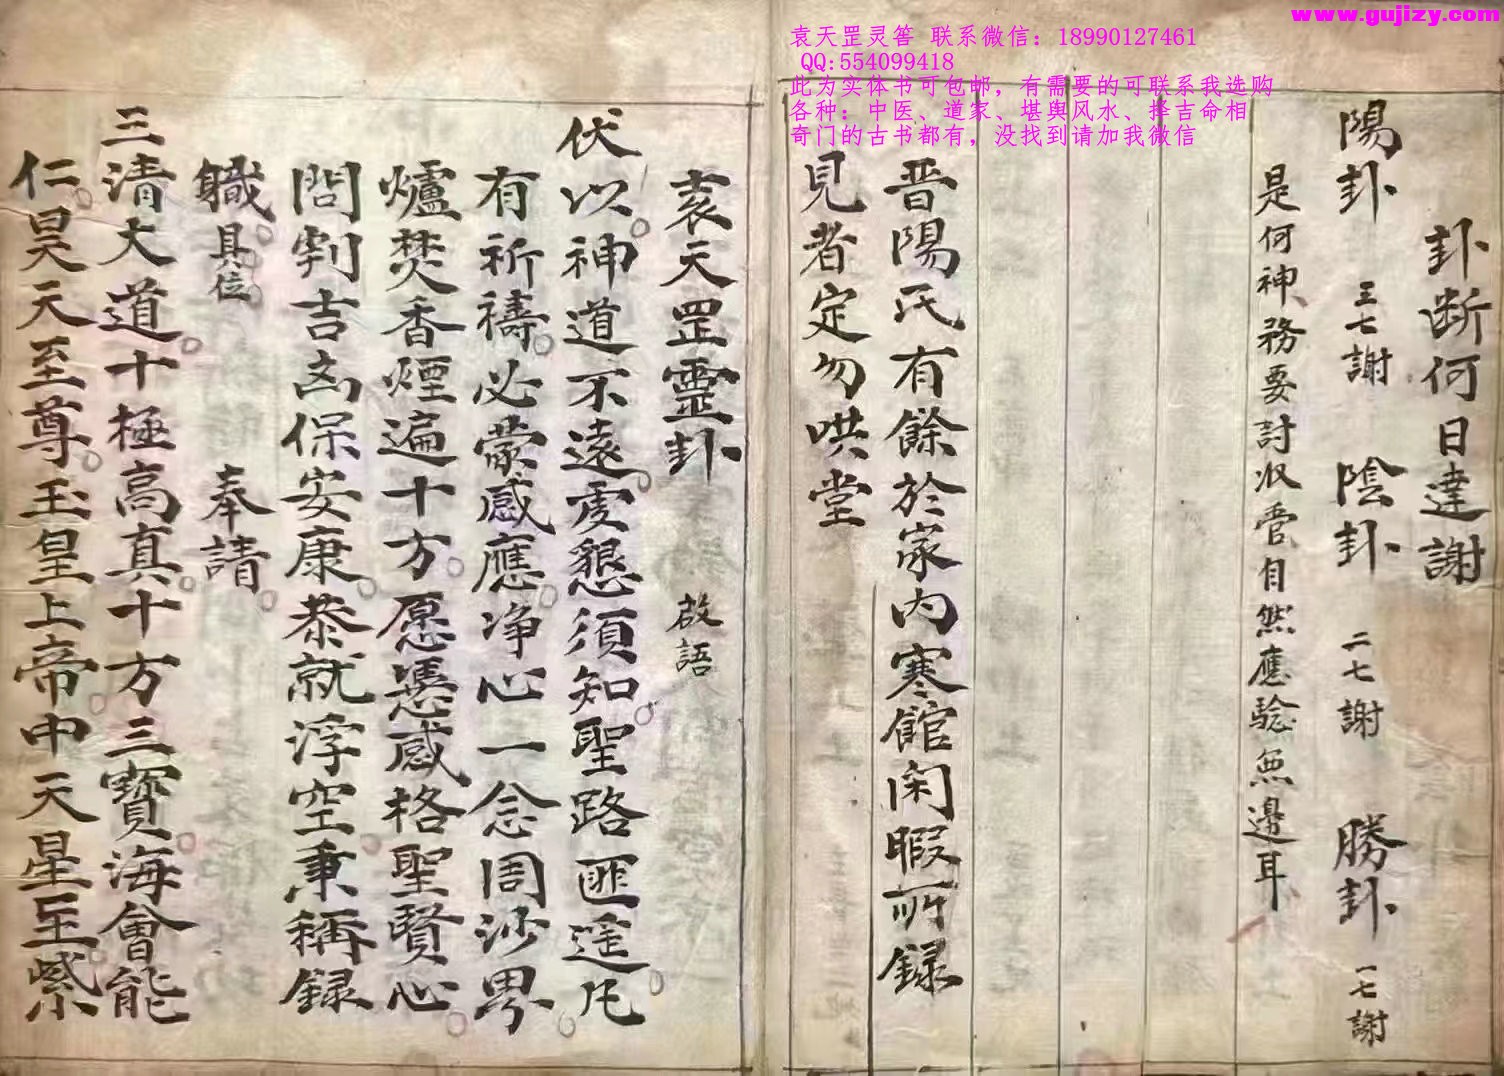 www.gujizy.com
袁天罡灵筶 联系微信：18990127461
QQ:554099418
此为实体书可包邮，有需要的可联系我选购
各种：中医、道家、堪舆风水、择吉命相
奇门的古书都有，没找到请加我微信
卦断何日達謝
陽卦 三七謝 陰卦 二七謝 勝卦 一七謝
是何神務要討收管自然應驗無邊耳
晋陽氏有餘於家内寒館闲暇所録
見者定勿哄堂
袁天罡靈卦 啟語
伏以神道不遠虔懇須知聖路匪遥凡
有祈禱必蒙感應净心一念周沙界
爐焚香煙遍十方愿憑感格聖賢心
問判吉凶保安康恭就浮空秉稱録
職具位 奉請
三清大道十極高真十方三寳海會能
仁昊天至尊玉皇上帝中天星主紫